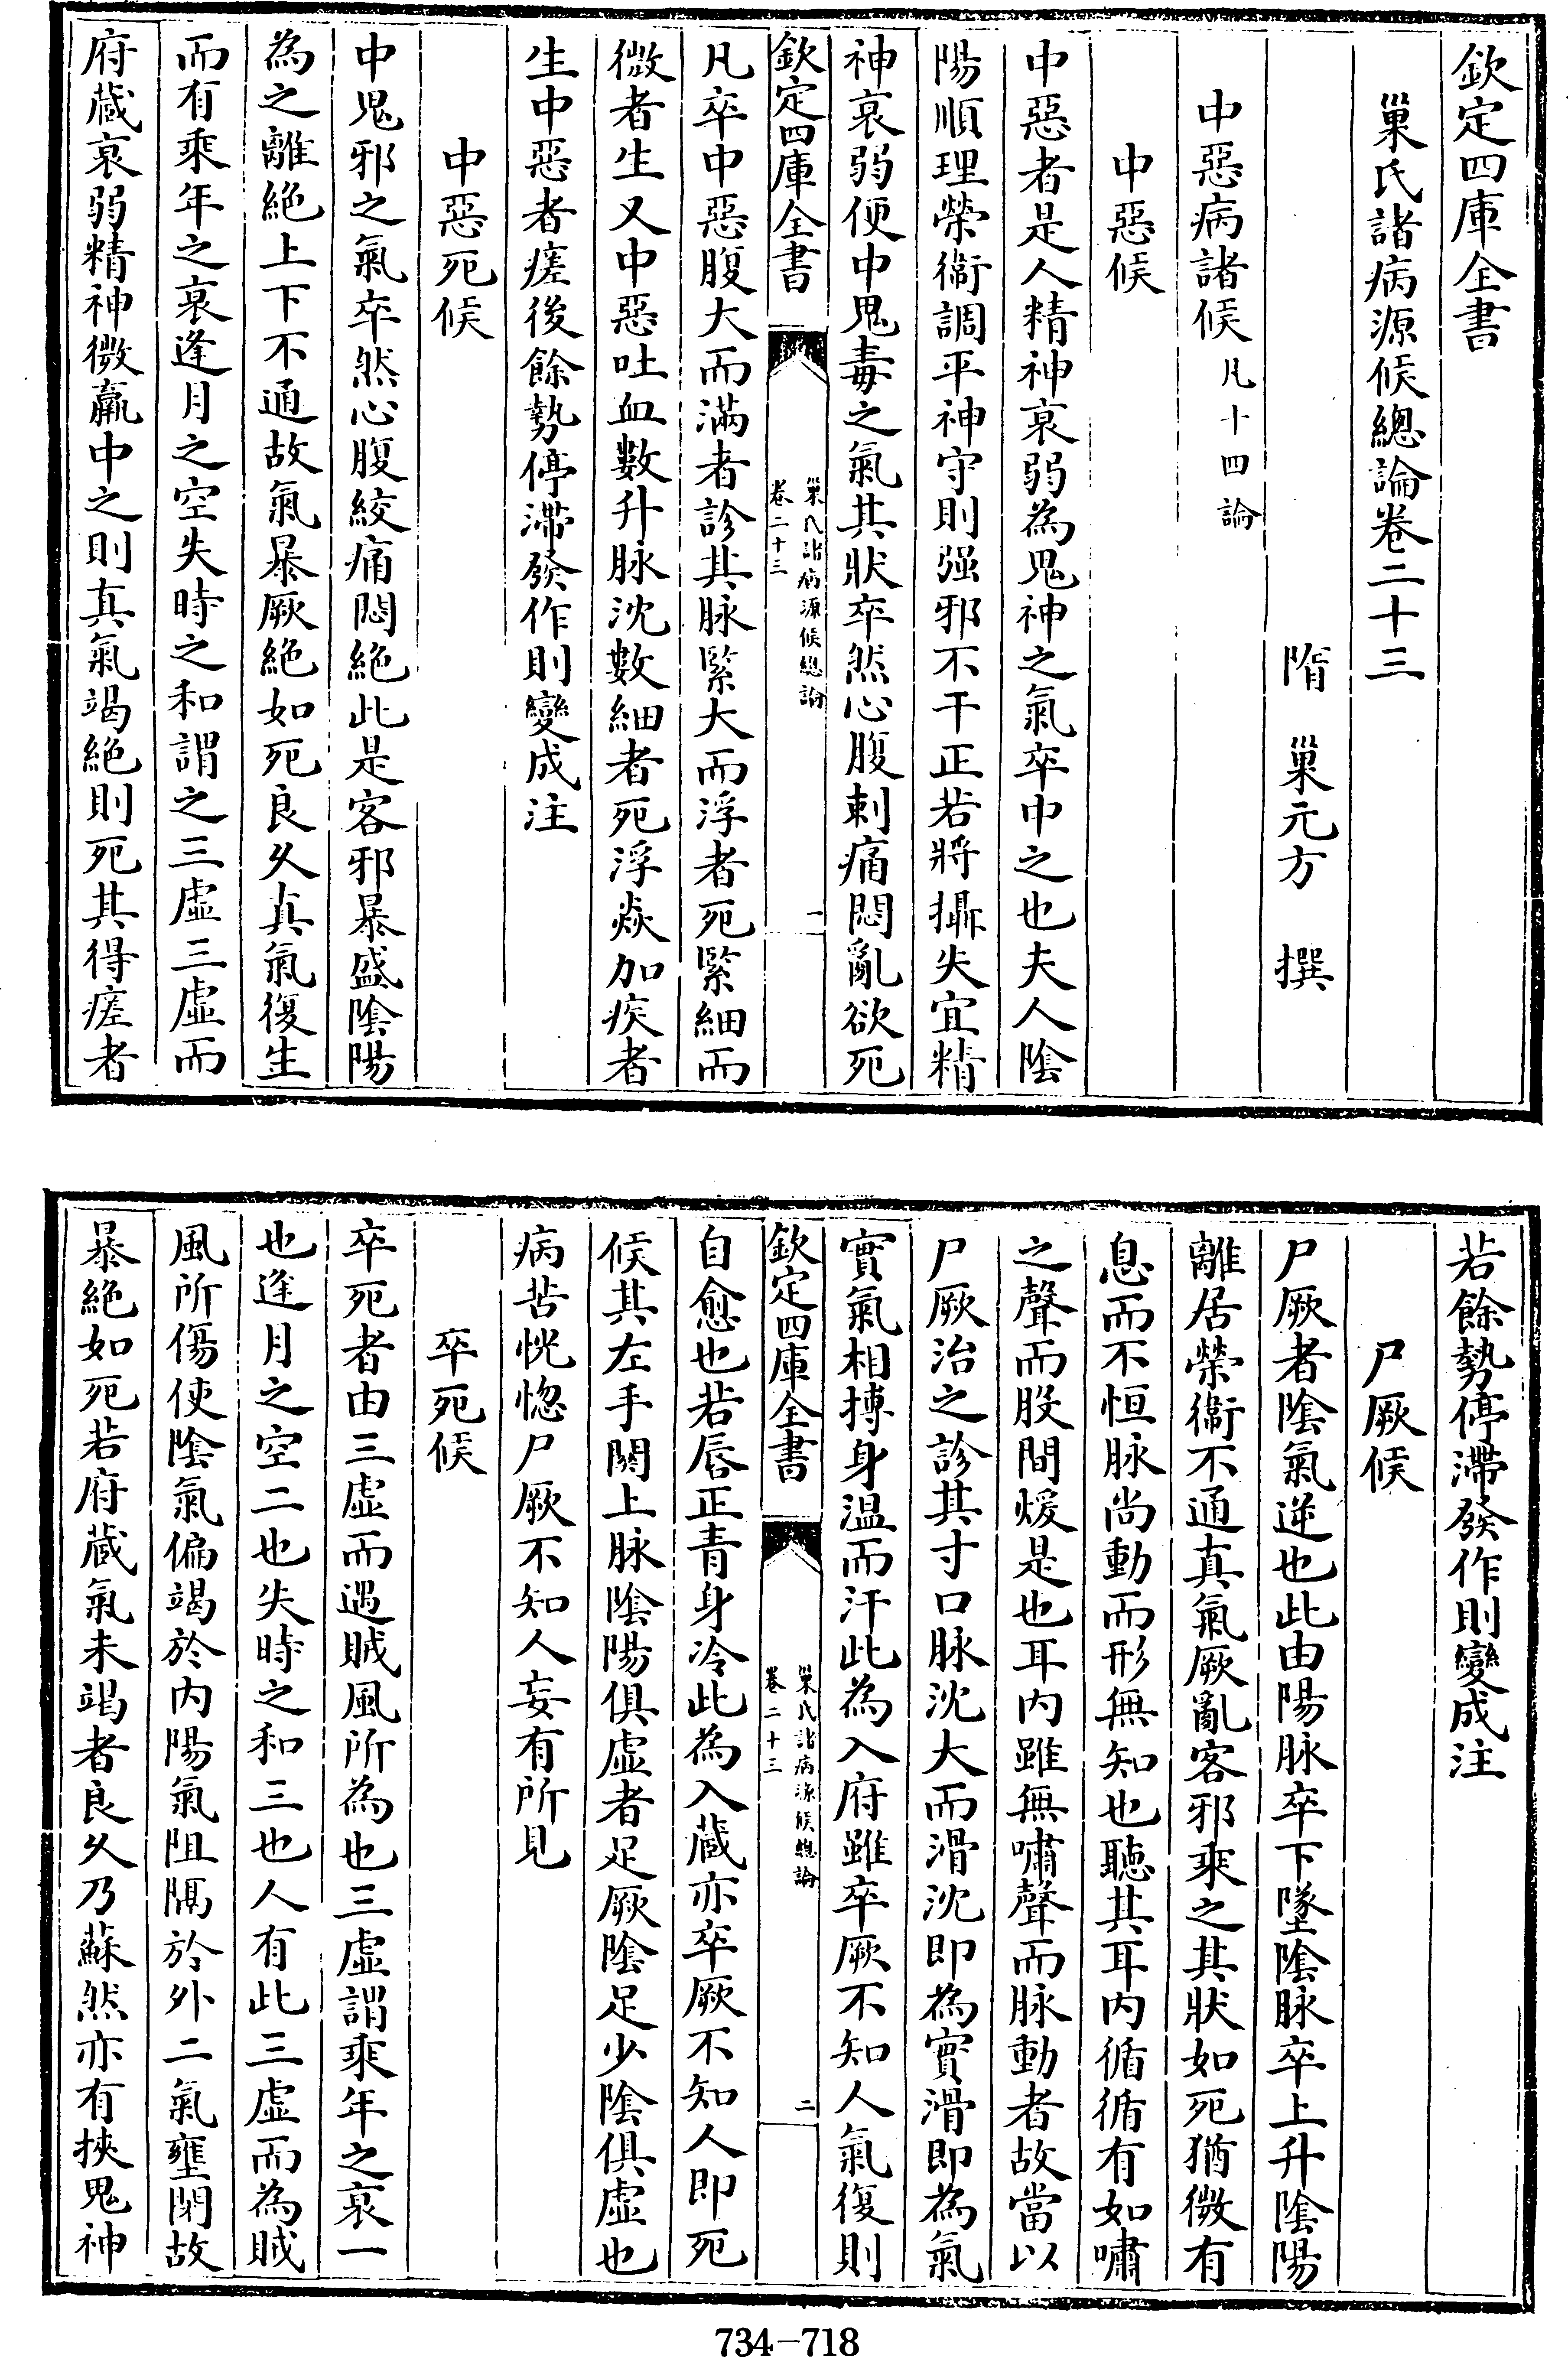 欽定四庫全書
巢氏諸病源候總論卷二十三
隋　巢元方　撰
中惡病諸候凡十四論
中惡候
中惡者是人精神衰弱為鬼神之氣卒中之也夫人陰
陽順理榮衛調平神守則强邪不干正若將攝失宜精
神衰弱便中鬼毒之氣其狀卒然心腹刺痛悶亂欲死
欽定四庫全書
巢氏諸病源候總論
卷二十三
一
凡卒中惡腹大而滿者診其脉緊大而浮者死緊細而
微者生又中惡吐血數升脉沈數細者死浮焱加疾者
生中惡者瘥後餘勢停滯發作則變成注
中惡死候
中鬼邪之氣卒然心腹絞痛悶絕此是客邪暴盛陰陽
為之離絕上下不通故氣暴厥絕如死良久真氣復生
而有乘年之衰逢月之空失時之和謂之三虛三虛而
府藏衰弱精神微羸中之則真氣竭絕則死其得瘥者
若餘勢停滯發作則變成注
尸厥候
尸厥者陰氣逆也此由陽脉卒下墜陰脉卒上升陰陽
離居榮衛不通真氣厥亂客邪乘之其狀如死猶微有
息而不恒脉尚動而形無知也聽其耳内循循有如嘯
之聲而股間煖是也耳内雖無嘯聲而脉動者故當以
尸厥治之診其寸口脉沈大而滑沈即為實滑即為氣
實氣相搏身温而汗此為入府雖卒厥不知人氣復則
欽定四庫全書
巢氏諸病源候總論
卷二十三
二
自愈也若唇正青身冷此為入藏亦卒厥不知人即死
候其左手關上脉陰陽俱虛者足厥陰足少陰俱虛也
病苦恍惚尸厥不知人妄有所見
卒死候
卒死者由三虛而遇賊風所為也三虛謂乘年之衰一
也逢月之空二也失時之和三也人有此三虛而為賊
風所傷使陰氣偏竭於内陽氣阻隔於外二氣壅閉故
暴絕如死若府藏氣未竭者良久乃蘇然亦有挾鬼神
734-718